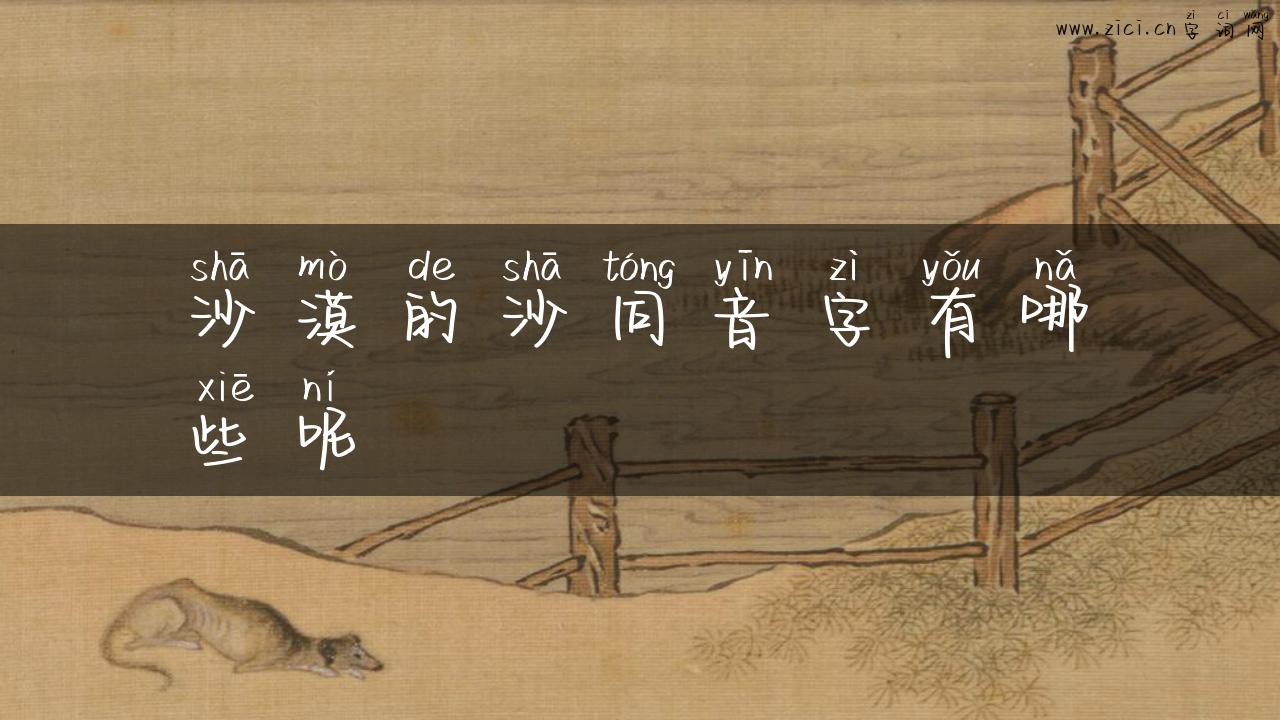 zi ci wang
www.zici.cn 字词网
shā mò de shā tóng yīn zì yǒu nǎ
沙漠的沙同音字有哪
xiē ní
些呢